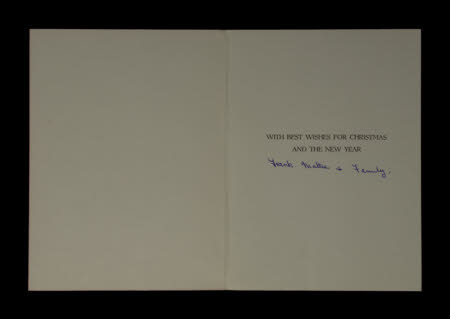 WITH BEST WISHES FOR CHRISTMAS
AND THE NEW YEAR
Frank Mattie + Family.